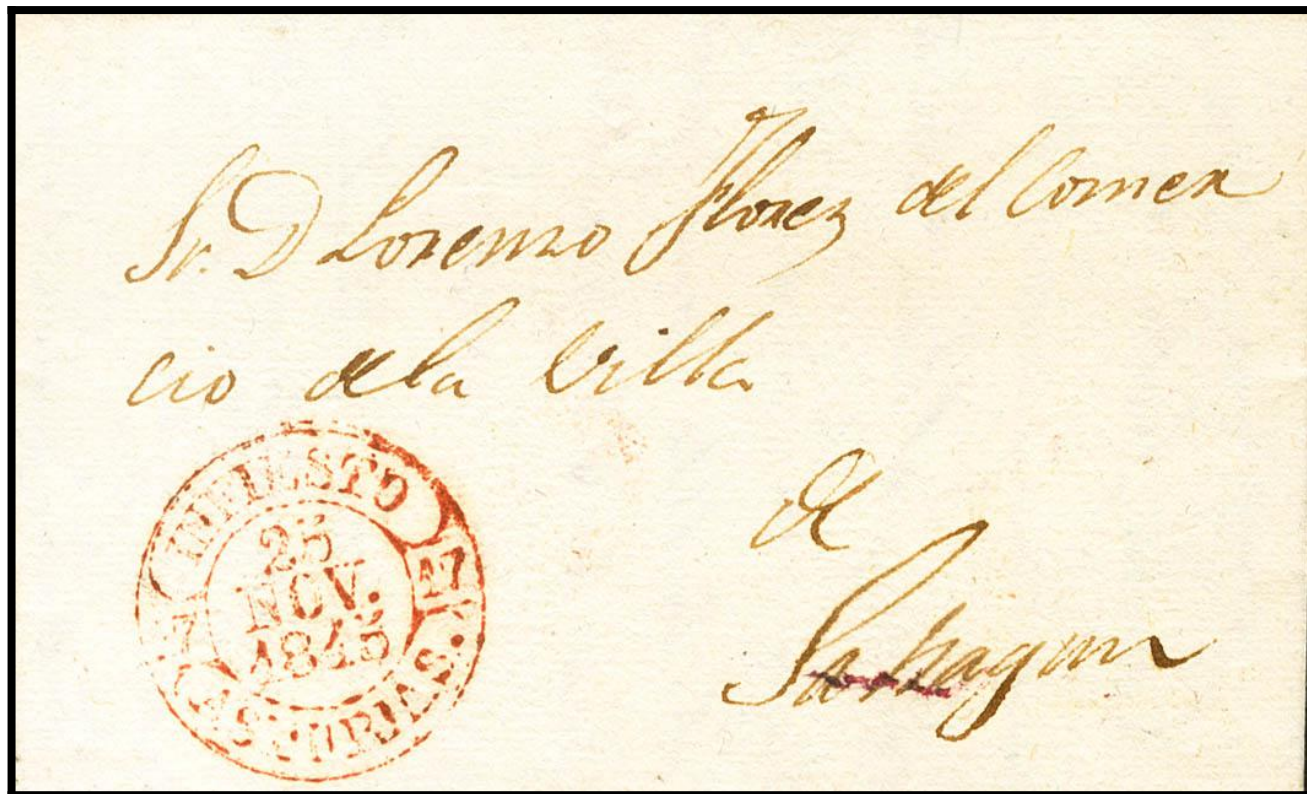 Sr. D Lorenzo Florez del Comer
cio dela Villa
de
Sahagun
INFIESTO
25
NOV.
1845